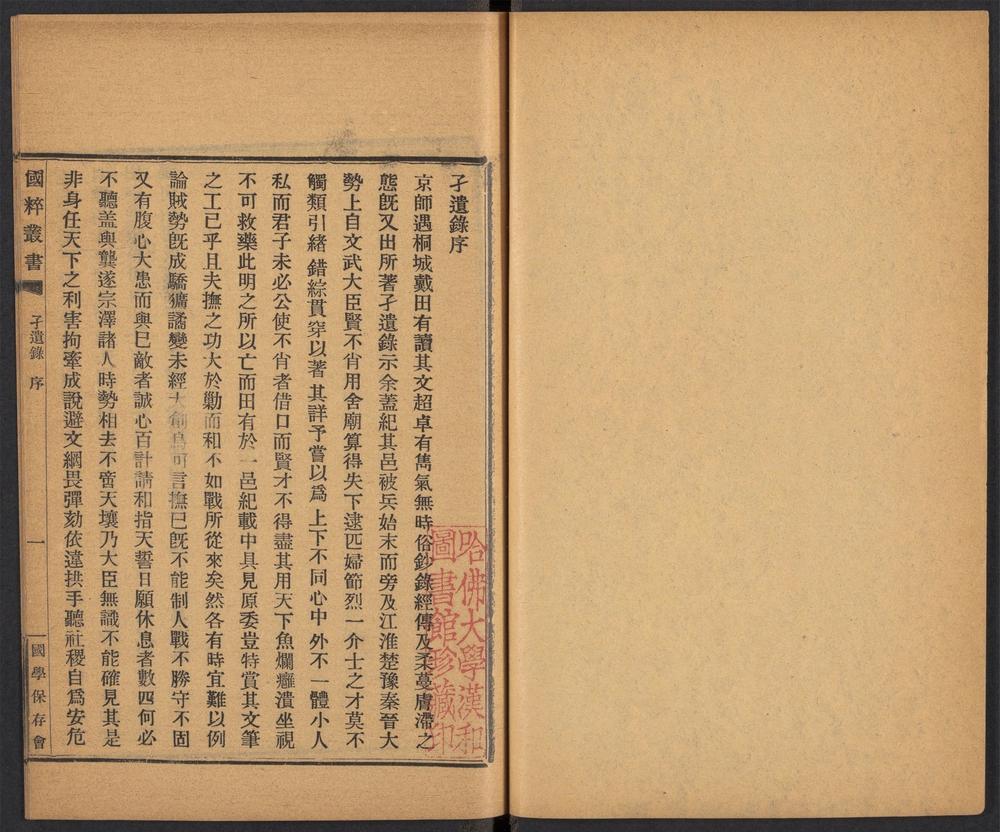 孑遺錄序
京師遇桐城戴田有讀其文超卓有雋氣無時俗鈔錄經傳及柔蔓膚滯之
態旣又出所著孑遺錄示余蓋紀其邑被兵始末而旁及江淮楚豫秦晉大
勢上自文武大臣賢不肖用舍廟算得失下逮匹婦節烈一介士之才莫不
觸類引緒錯綜貫穿以著其詳予嘗以爲上下不同心中外不一體小人
私而君子未必公使不肖者借口而賢才不得盡其用天下魚爛癰潰坐視
不可救藥此明之所以亡而田有於一邑紀載中具見原委豈特賞其文筆
之工已乎且夫撫之功大於勦而和不如戰所從來矣然各有時宜難以例
論賊勢旣成驕獷譎變未經大創烏可言撫巳旣不能制人戰不勝守不固
又有腹心大患而與巳敵者誠心百計請和指天誓日願休息者數四何必
不聽盖與龔遂宗澤諸人時勢相去不啻天壤乃大臣無識不能確見其是
非身任天下之利害拘牽成說避文網畏彈劾依違拱手聽社稷自爲安危
國粹叢書
孑遺錄 序
一
國學保存會
哈佛大學漢和
圖書館珍藏印